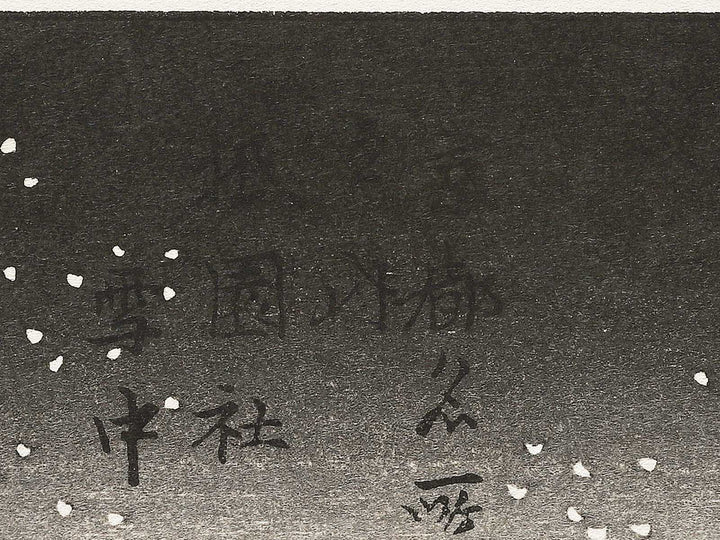 京都名所
之内
祇園社
雪中